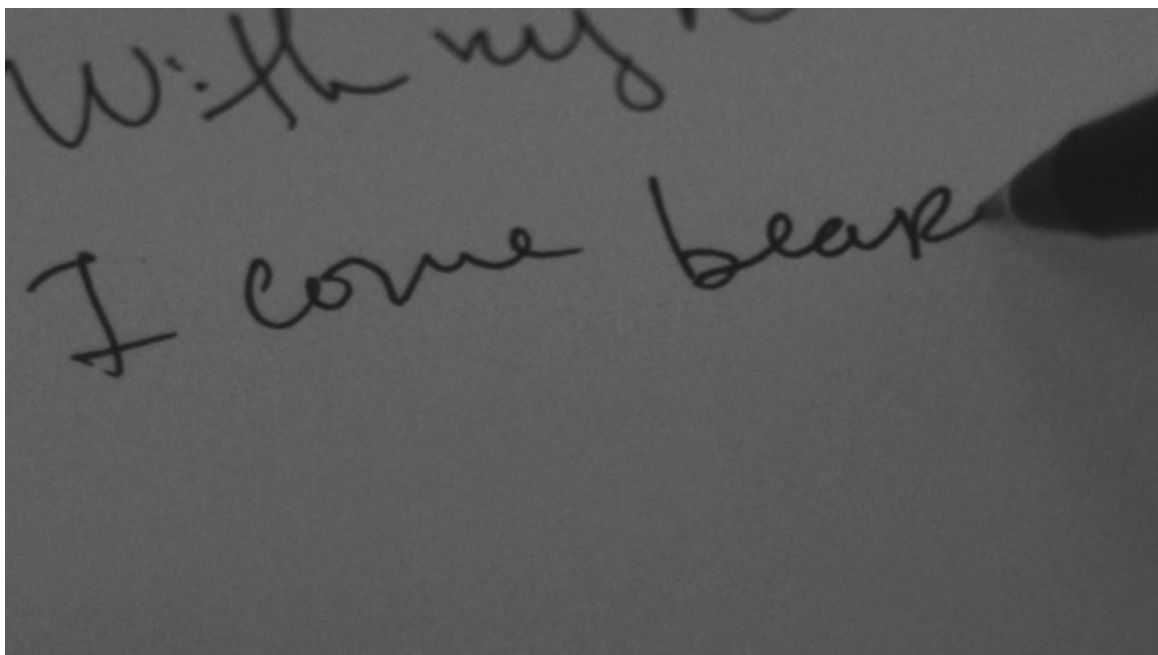 With my
I come bear